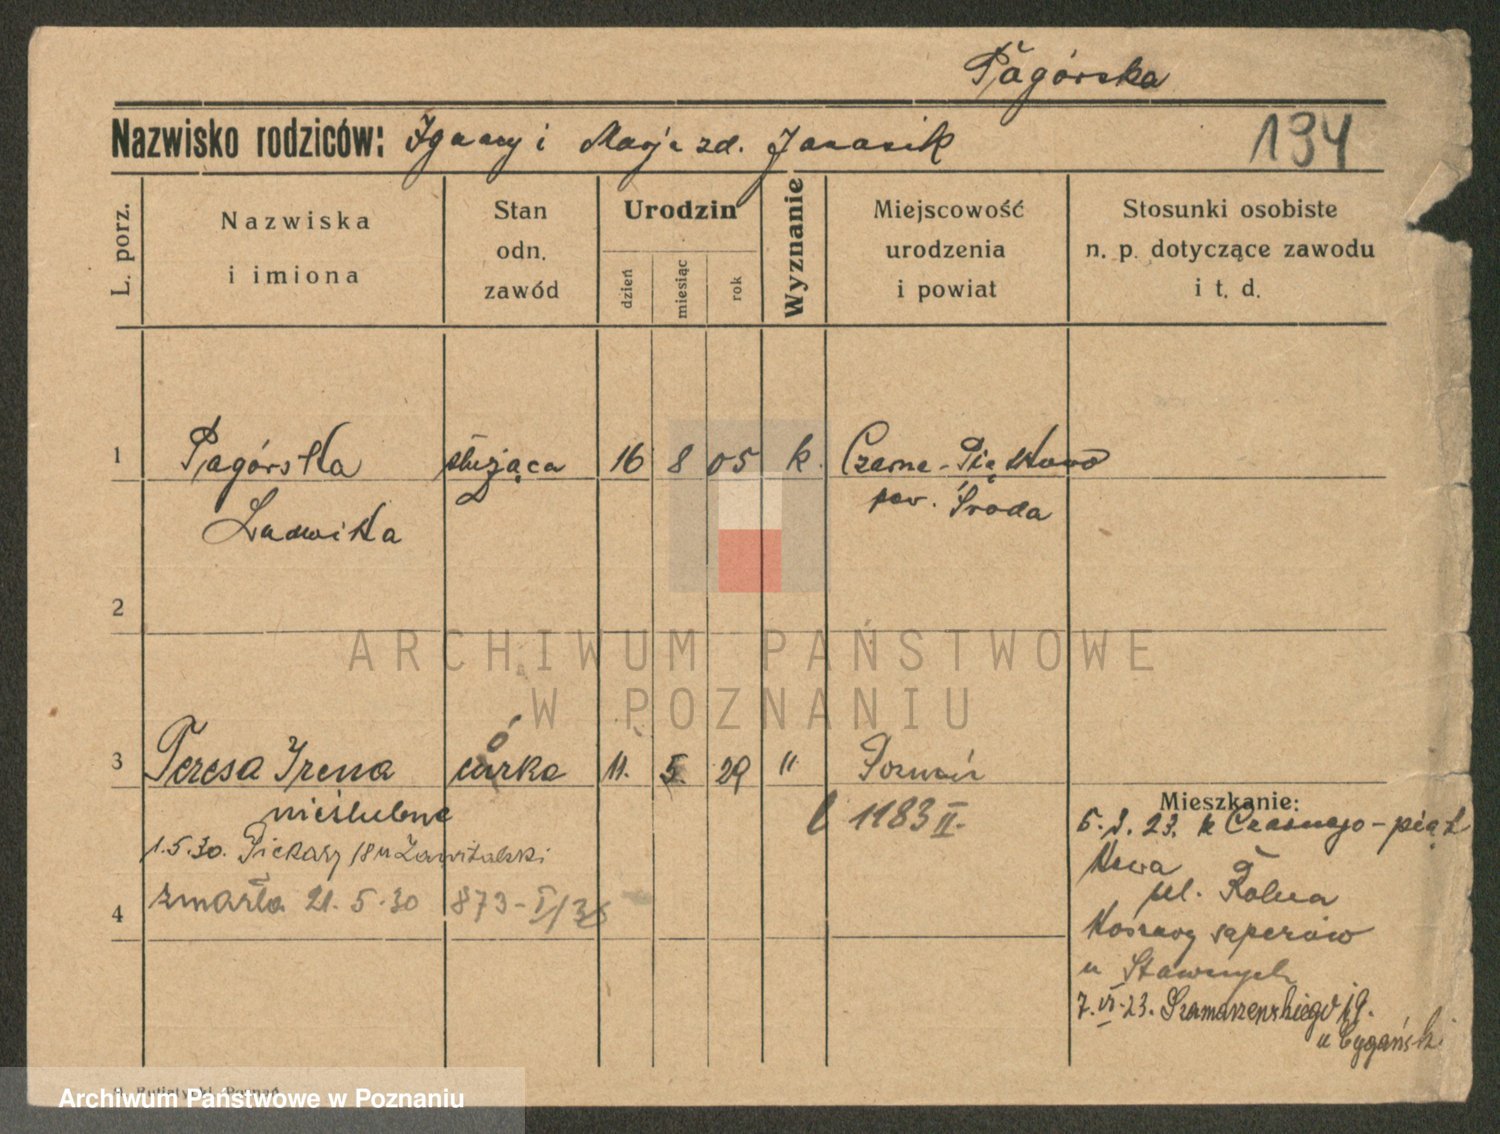 Pagórska
Nazwisko rodziców: Ignacy i Marja zd. Janasik
134
L. porz.
Nazwiska
i imiona
Stan
odn.
zawód
Urodzin
dzień
miesiąc
rok
Wyznanie
Miejscowość
urodzenia
i powiat
Stosunki osobiste
n. p. dotyczące zawodu
i t. d.
1 Pagórska służąca 16 8 05 k. Czarne-Piątkowo
Ludwika pow. Środa
2
ARCHIWUM PAŃSTWOWE
W POZNANIU
3 Teresa Irena córka 11. 5. 29 " Poznań
nieślubna 1183 II.
1.5.30. Piekary 18
4 zmarła 21.5.30 873-I/
Mieszkanie:
23. k Czarnego-piąt
kowa
ul. Rolna
Koszary saperów
u
7.VI.23. 19.
u Cygański
Poznań
Archiwum Państwowe w Poznaniu